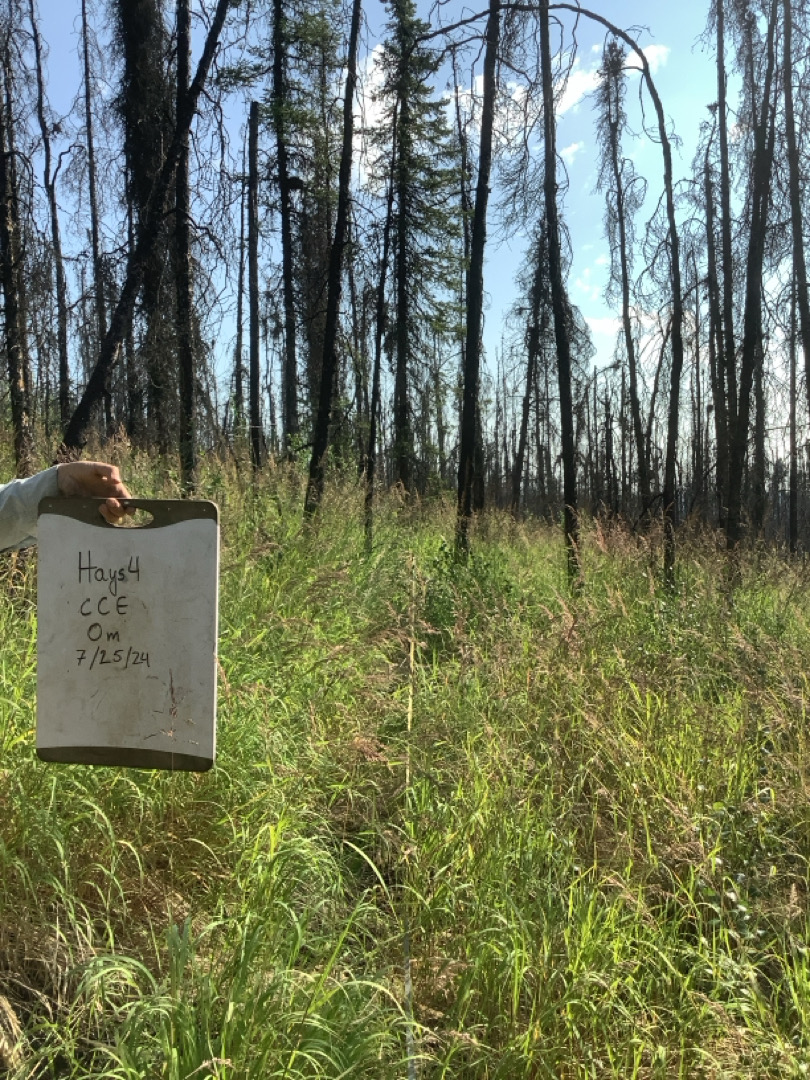 Hays4
CCE
0m
7/25/24